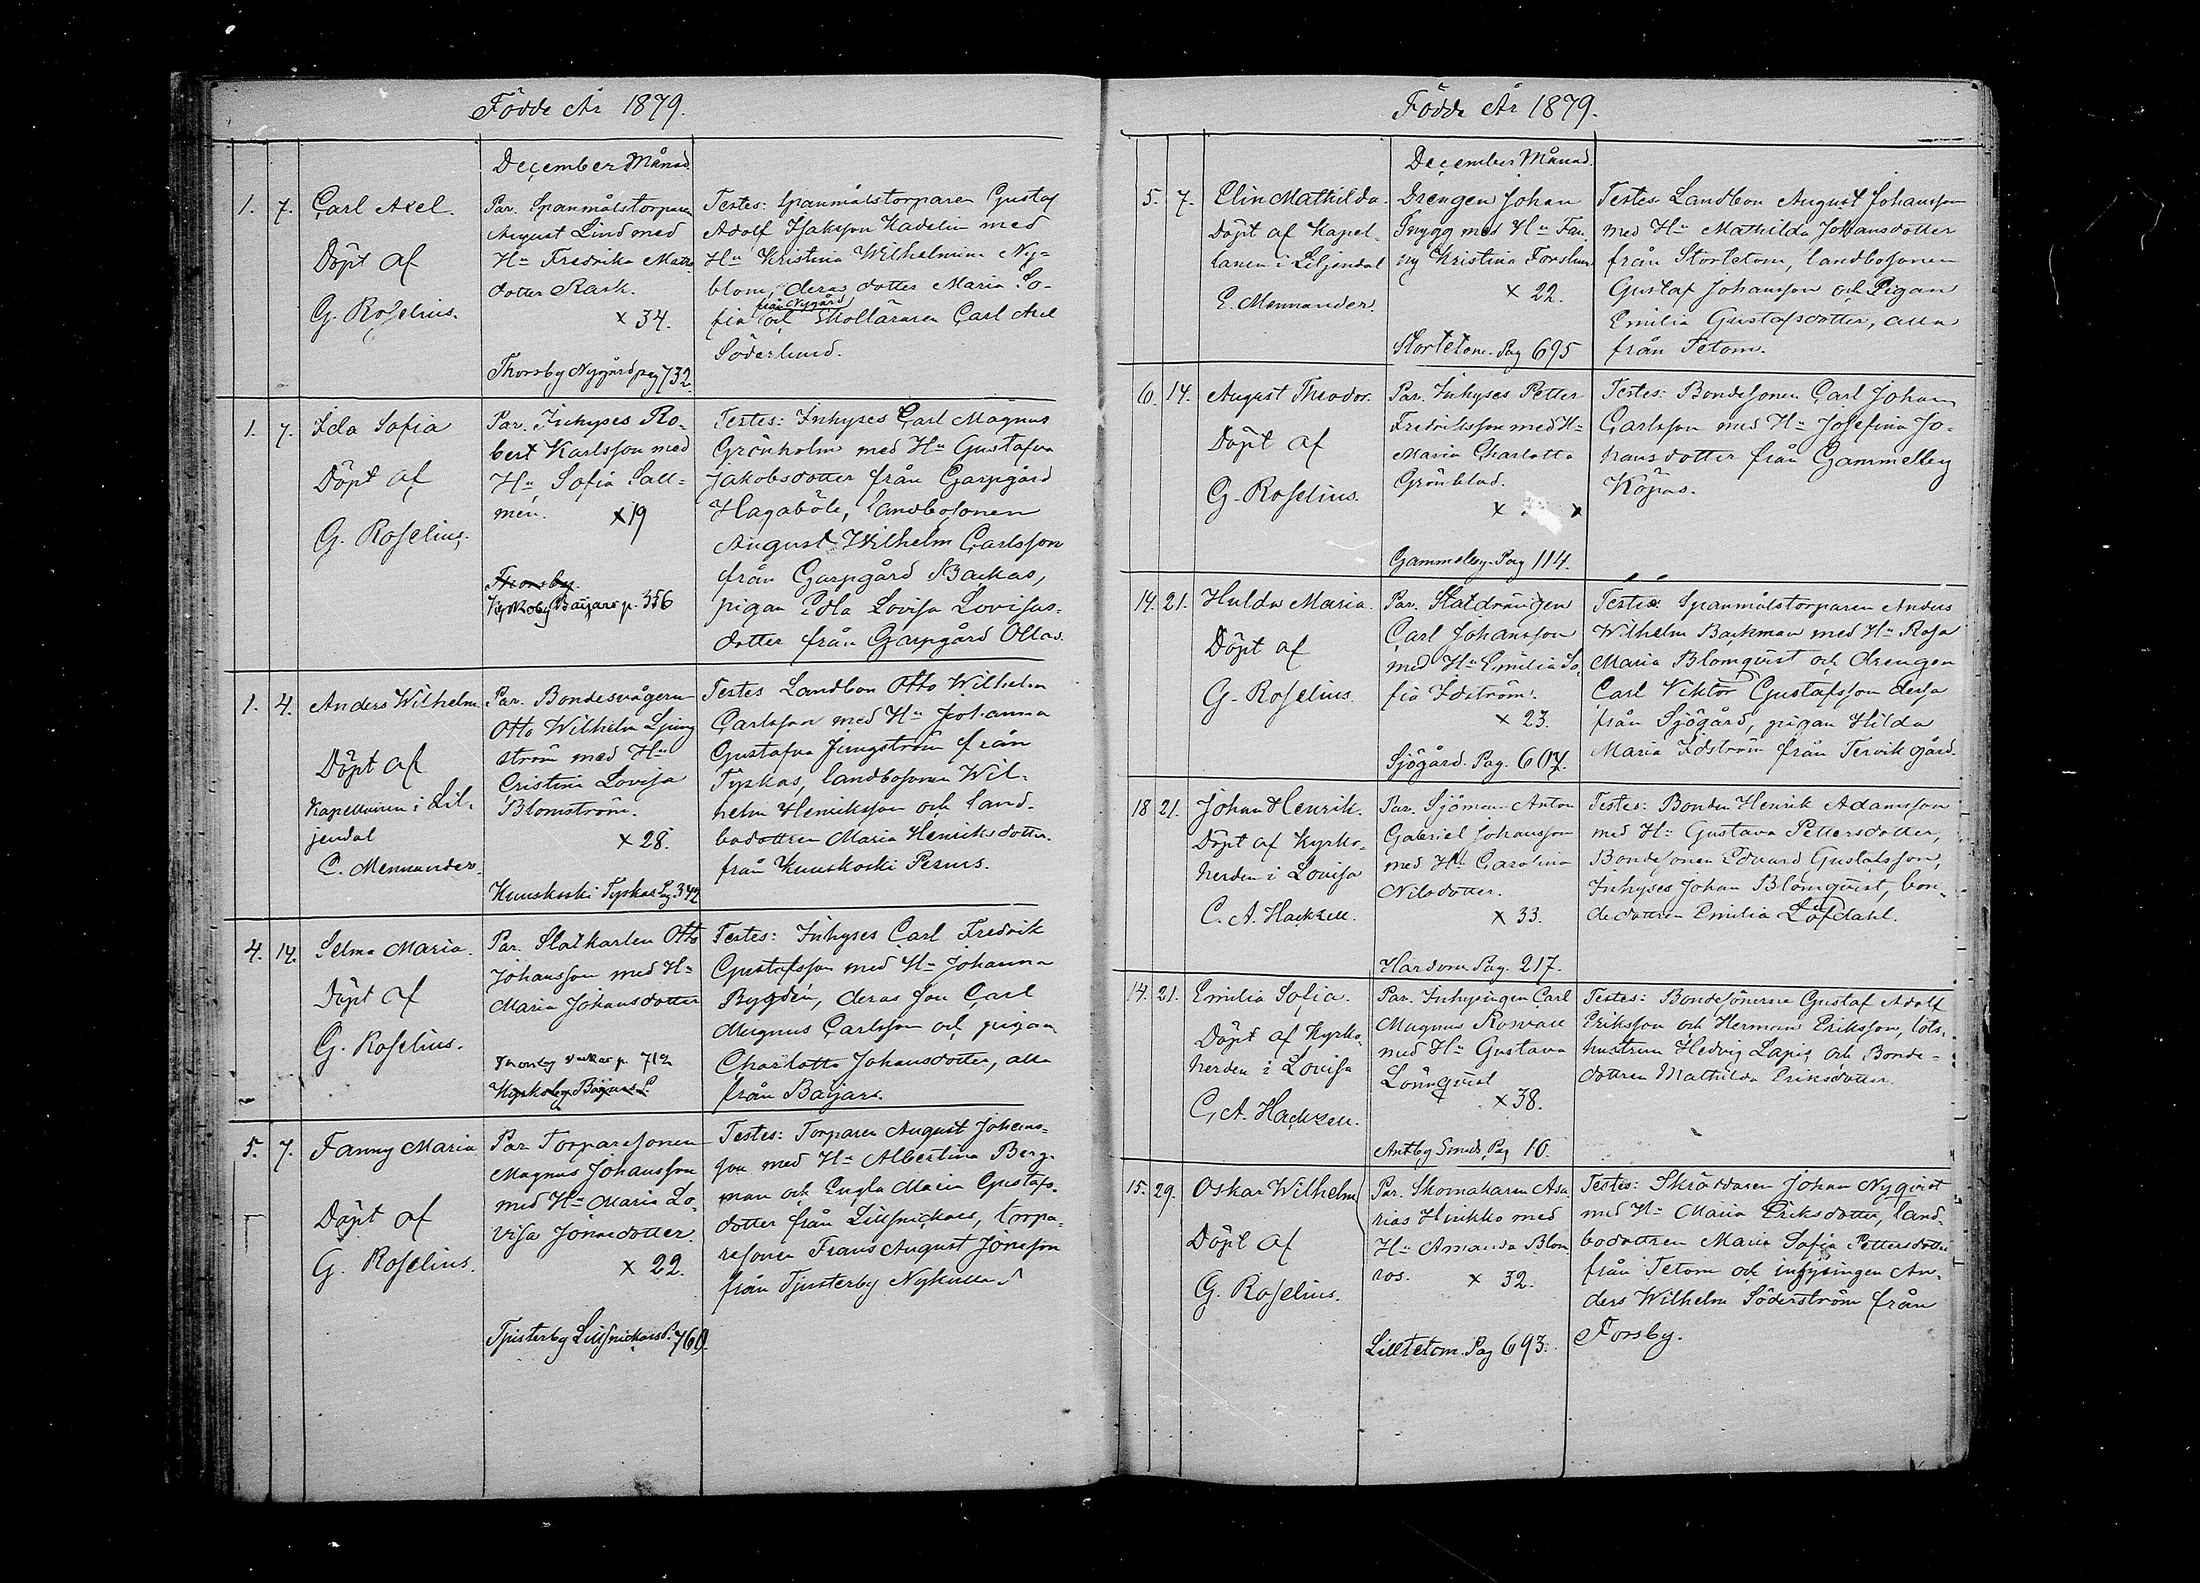 Födde År 1879.
December Månad
1. 7. Carl Axel.
Döpt af
G. Roselius.
Par. Spanmålstorparen
August Lind med
Hu Fredrika Matts
dotter Rask.
x 34.
Thorsby Nygård pag 732.
Testes: Spanmålstorparen Gustaf
Adolf Isaksson Kadelin med
Hu Kristina Wilhelmina Ny-
blom, deras dotter Maria So-
från Nygård
fia och Skolläraren Carl Axel
Söderlund.
1. 7. Ida Sofia
Döpt af
G. Roselius.
Par. Inhyses Ro-
bert Karlsson med
Hu Sofia Sall-
mén.
x 19
Thorsby
Kyrkoby Baijars p. 356
Testes: Inhyses Carl Magnus
Grönholm med Hu Gustafva
Jakobsdotter från Garpgård
Hagaböle, landbosonen
August Wilhelm Carlsson
från Garpgård Backas,
pigan Ida Lovisa Lovisas-
dotter från Garpgård Ollas.
1. 4. Anders Wilhelm.
Döpt af
Kapellanen i Lil-
jendal
E. Mennander.
Par. Bondesvågern
Otto Wilhelm Ljung
ström med Hu
Cristina Lovisa
Blomström.
x 28.
Kuuskoski Tyskas Pag 342
Testes Landbon Otto Wilhelm
Carlsson med Hu Johanna
Gustafva Jungström från
Tyskas, landbosonen Wil-
helm Henriksson och land-
bodottren Maria Henriksdotter
från Kuuskoski Pernus.
4. 14. Selma Maria.
Döpt af
G. Roselius.
Par. Statkarlen Otto
Johansson med Hu
Maria Johansdotter
Thorsby p. 712
Kyrkoby Baijars P.
Testes: Inhyses Carl Fredrik
Gustafsson med Hu Johanna
Bygdén, deras son Carl
Magnus Carlsson och pigan
Charlotta Johansdotter, alla
från Baijars.
5. 7. Fanny Maria
Döpt af
G. Roselius.
Par Torparesonen
Magnus Johansson
med Hu Maria Lo-
visa Jönsdotter.
x 22.
Tjusterby Lillsnickars P. 760.
Testes: Torparen August Johans-
son med Hu Albertina Berg-
man och Engla Maria Gustafs-
dotter från Lillsnickars, torpa-
resonen Frans August Jönsson
från Tjusterby Nykulla
Födde År 1879.
December Månad.
5. 7. Elin Mathilda
Döpt af Kapel-
lanen i Liljendal
E. Mennander.
Drengen Johan
Trygg med Hu Fan-
ny Kristina Forslund
x 22.
Stortetom. Pag 695
Testes Landbon August Johansson
med Hu Mathilda Johansdotter
från Stortetom, landbosonen
Gustaf Johansson och Pigan
Emilia Gustafsdotter, alla
från Tetom.
6. 14. August Theodor.
Döpt af
G. Roselius.
Par. Inhyses Petter
Fredriksson med Hu
Maria Charlotta
Grönblad.
x
Gammelby Pag 114.
Testes: Bondesonen Carl Johan
Carlsson med Hu Josefina Jo-
hansdotter från Gammelby
Köpas.
14. 21. Hulda Maria.
Döpt af
G. Roselius.
Par. Statdrängen
Carl Johansson
med Hu Emilia So-
fia Idström.
x 23.
Sjögård. Pag. 607.
Testes: Spanmålstorparen Anders
Wilhelm Backman med Hu Rosa
Maria Blomqvist och drengen
Carl Viktor Gustafsson dessa
från Sjögård, pigan Hilda
Maria Idström från Tervik gård.
18 21. Johan Henrik.
Döpt af Kyrko-
herden i Lovisa
C. A. Hackzell.
Par. Sjöman Anton
Gabriel Johansson
med Hu Carolina
Nilsdotter.
x 33.
Hardom Pag. 217.
Testes: Bonden Henrik Adamsson
med Hu Gustava Pettersdotter,
Bondesonen Edvard Gustafsson,
Inhyses Johan Blomqvist, bon-
dedottren Emilia Löfdahl.
14. 21. Emilia Sofia.
Döpt af Kyrko-
herden i Lovisa
C. A. Hackzell.
Par. Inhysingen Carl
Magnus Rosvall
med Hu Gustava
Lönnqvist
x 38.
Antby Smeds Pag 10.
Testes: Bondesönerne Gustaf Adolf
Eriksson och Herman Eriksson, lots-
hustrun Hedvig Lapis och Bonde-
dottren Mathilda Eriksdotter.
15. 29. Oskar Wilhelm
Döpt af
G. Roselius.
Par. Skomakaren Asa-
rias Hirikko med
Hu Amanda Blom-
ros.
x 32.
Lilltetom. Pag 693.
Testes: Skräddaren Johan Nyqvist
med Hu Maria Eriksdotter, land-
bodottren Maria Sofia Pettersdotter
från Tetom och inhysingen An-
ders Wilhelm Söderström från
Forsby.